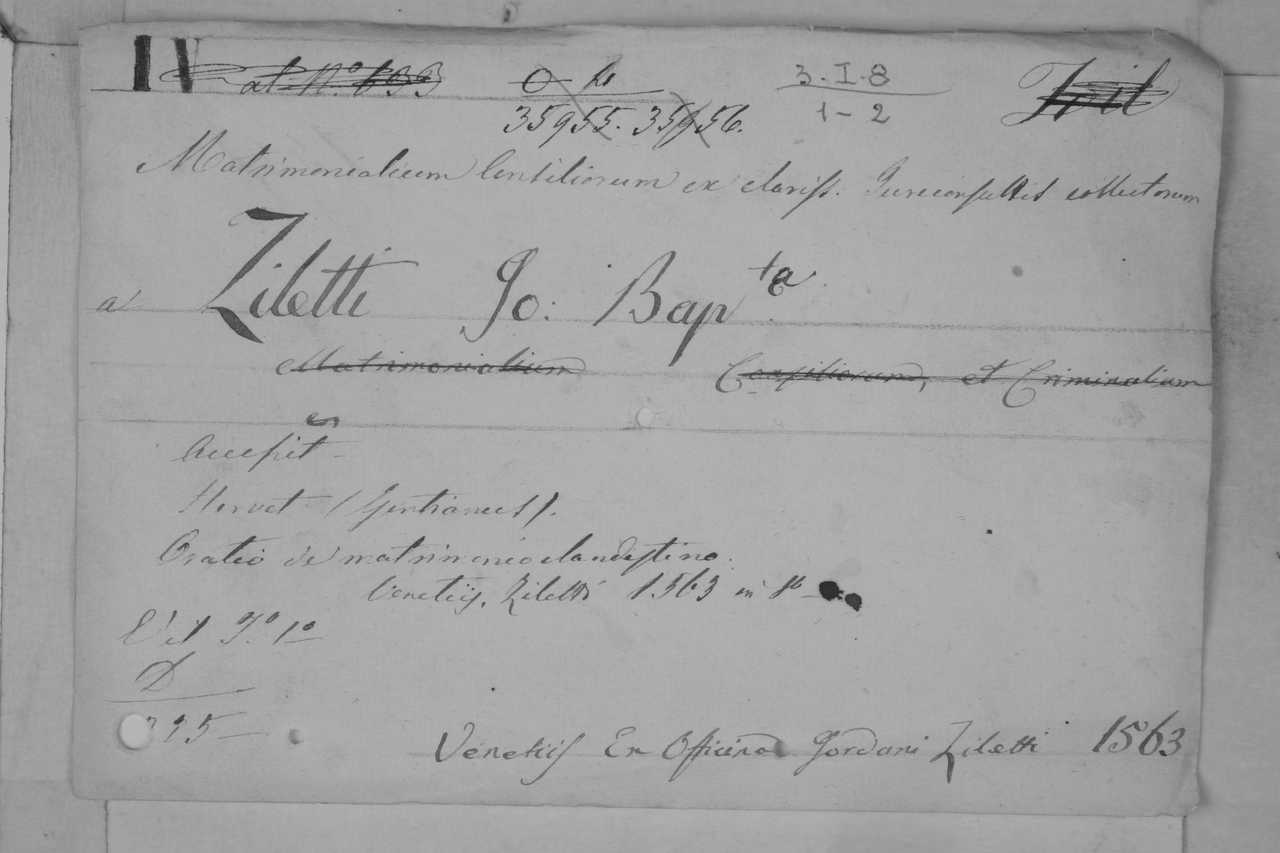 IV at N.º 693 O h 3-I-8
35955. 35956. 1-2
Matrimonialium Consiliorum ex clariss. Jureconsultis collectorum
a Ziletti Jo: Bap.ta
Matrimonialium Consiliorum, et Criminalium
Accepit
Hervet (Gentianus).
Oratio de matrimonio clandestino.
Venetijs, Ziletti 1563 in
T.º 1º
D
325
Venetiis Ex Officina Jordani Ziletti 1563